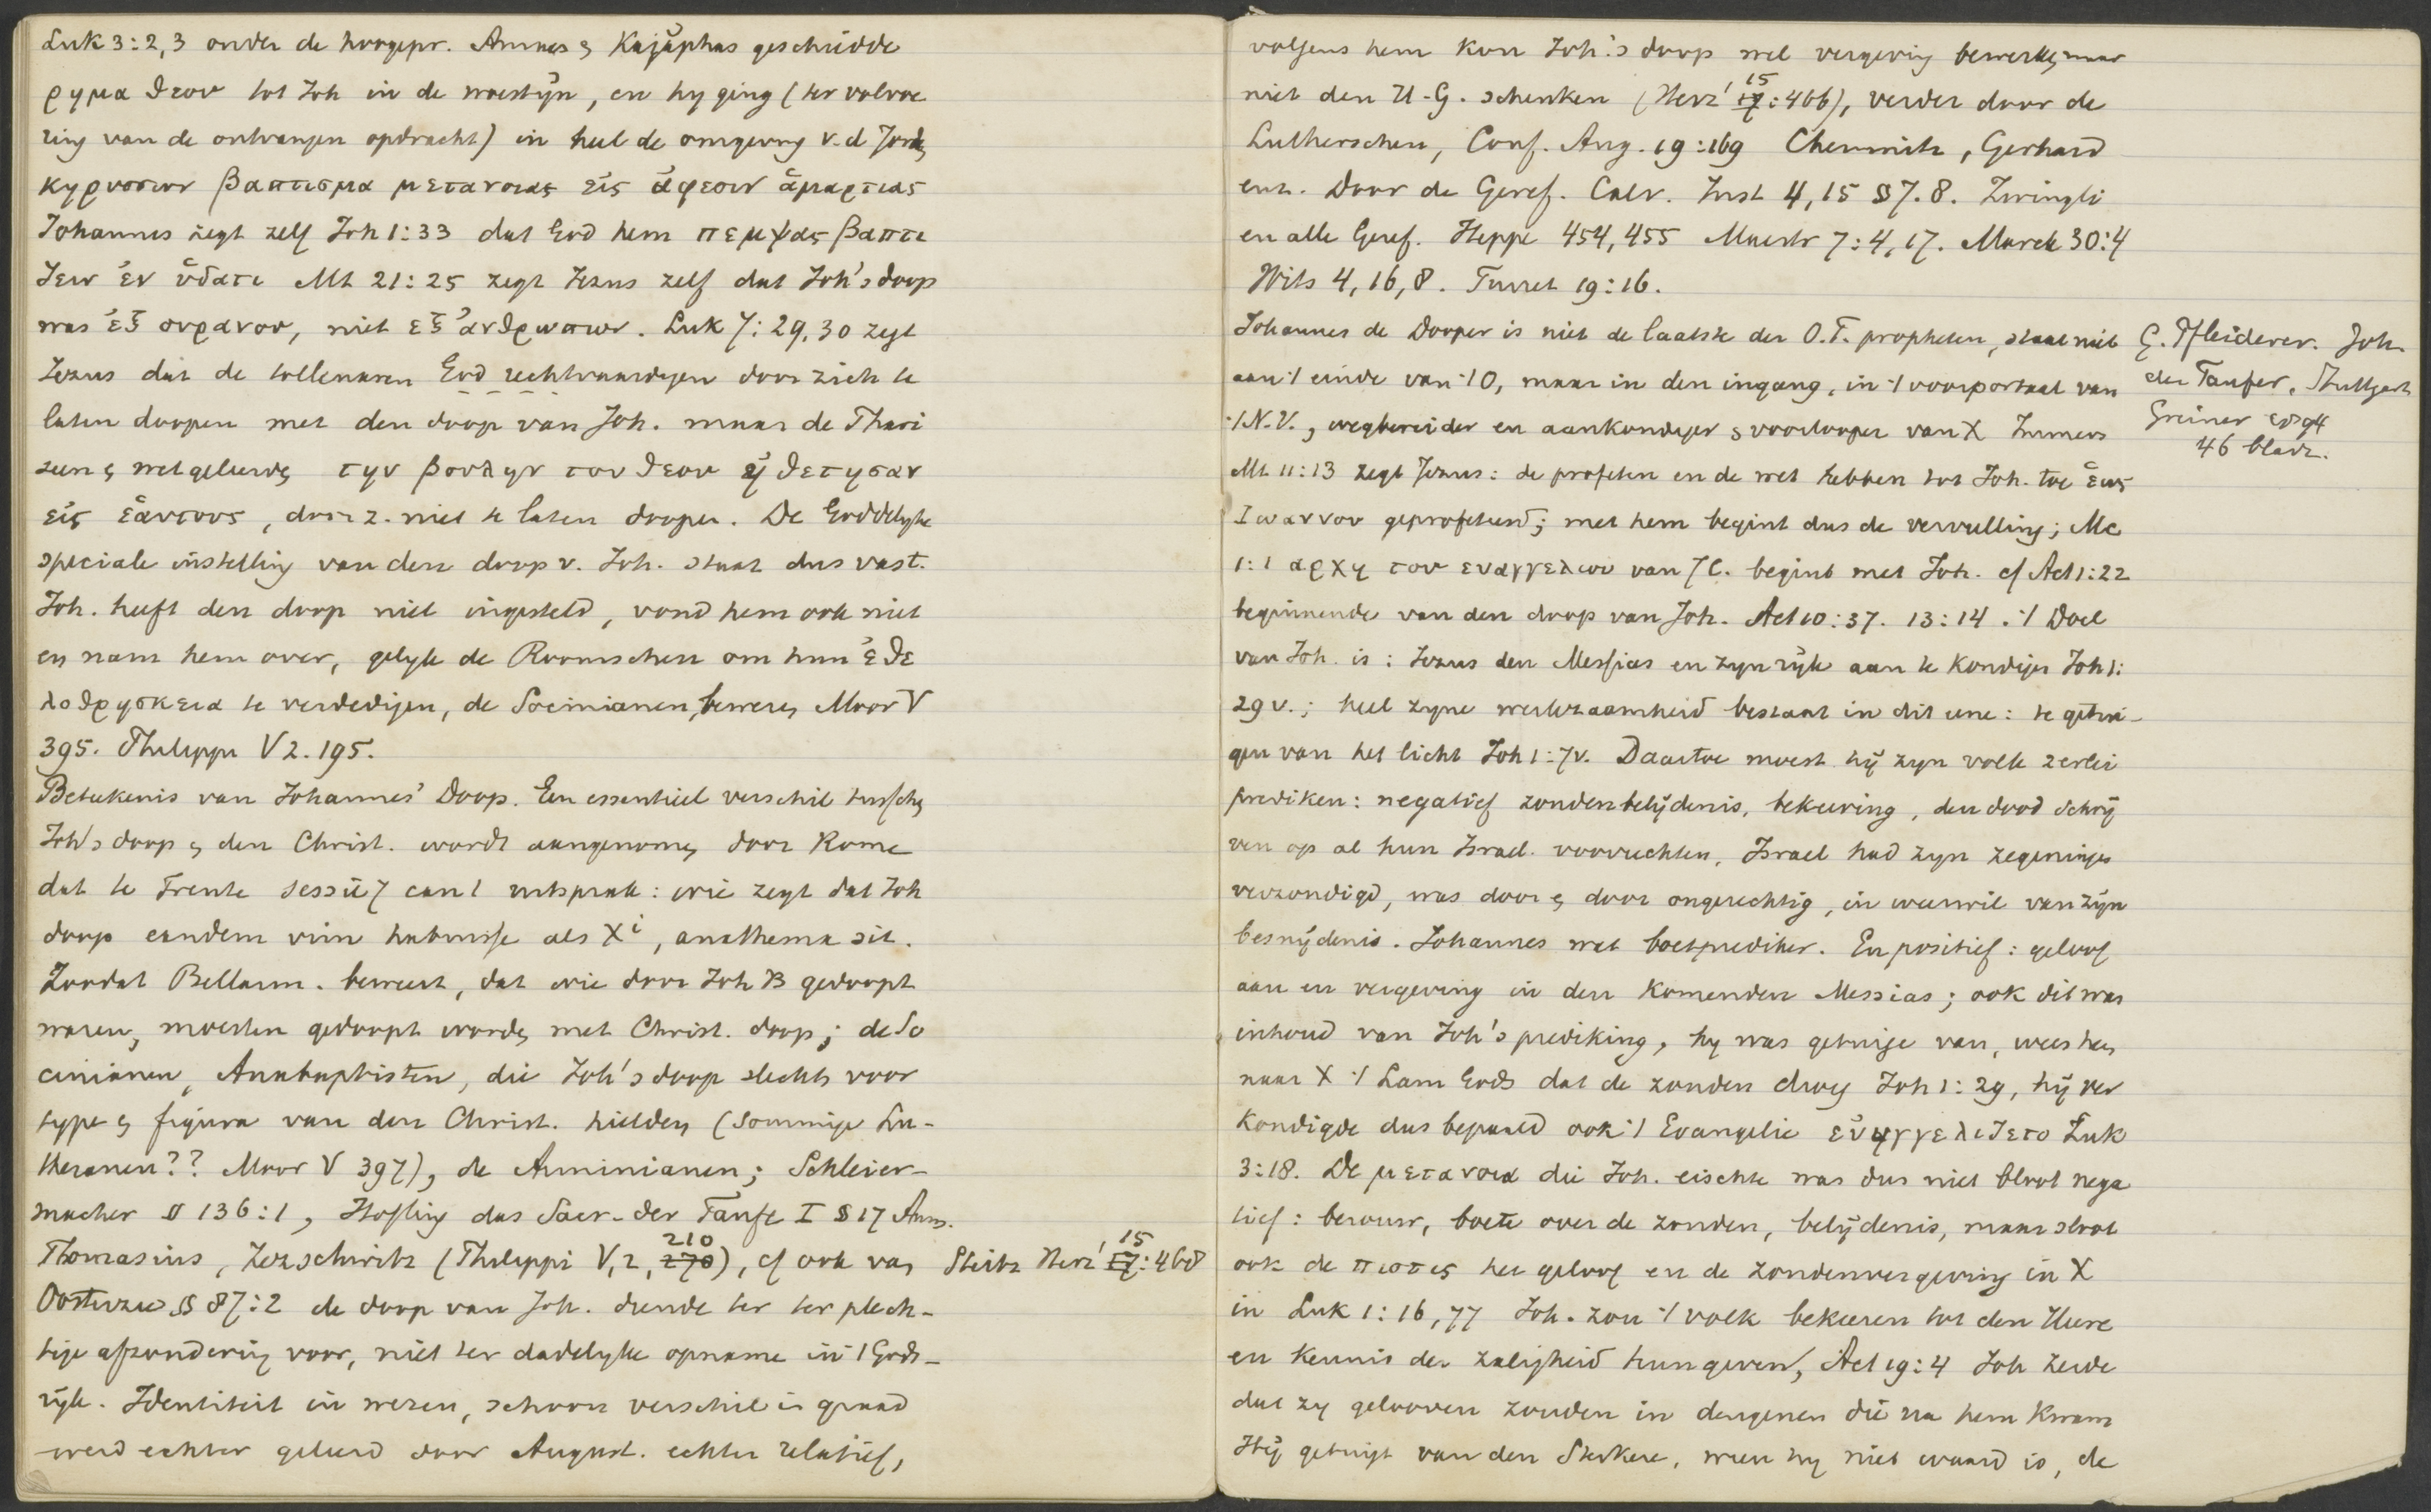 Luk 3:2,3 onder de hoogepr. Annas & Kajaphas geschiedde
ρημα θεου tot Joh in de woestijn, en hy ging (ter volvoe
ring van de ontvangen opdracht) in heel de omgeving v. d Jord,
κηρυσσων βαπτισμα μετανοιας εἰς ἀφεσιν ἁμαρτιας
Johannes zegt zelf Joh 1:33 dat God hem πεμψας βαπτι
ζειν ἐν ὑδατι Mt 21:25 zegt Jezus zelf dat Joh's doop
was ἐξ ουρανου, niet εξ ἀνθρωπων. Luk 7:29,30 zegt
Jezus dat de tollenaren God rechtvaardigen door zich te
laten doopen met den doop van Joh. maar de Phari
zeen & wetgeleerd, την βουλην του θεου ἠθετησαν
εἰς ἑαυτους, door z. niet te laten doopen. De Goddelyke
speciale instelling van den doop v. Joh. staat dus vast.
Joh. heeft den doop niet ingesteld, vond hem ook niet
en nam hem over, gelyk de Roomschen om hun ἐθε
λοθρησκεια te verdedigen, de Socinianen, beweren, Moor V
395. Philippi V 2. 195.
Beteekenis van Johannes' Doop. Een essentieel verschil tussch,
Joh's doop & den Christ. wordt aangenomen, door Rome
dat te Trente sessie 7 can 1 uitsprak: wie zegt dat Joh
doop eandem vim habuisse als Xi, anathema sit.
Zoodat Bellarm. beweert, dat wie door Joh B gedoopt
waren, moesten gedoopt worden, met Christ. doop; de So
cinianen, Anabaptisten, die Joh's doop slechts voor
type & figura van den Christ. hielden, (sommige Lu-
theranen?? Moor V 397), de Arminianen; Schleier-
macher § 136:1, Hofling das Sacr. der Taufe I § 17 Anm.
Thomasius, Zezschwitz (Philippi V, 2, 270 210), cf ook van Steitz Herz' 17 15:468
Oosterzee § 87:2 de doop van Joh. diende ter ter plech-
tige afzondering voor, niet ter dadelyke opname in 't Gods-
rijk. Identiteit in wezen, schoon verschil in graad
werd echter geleerd door August. echter relatief,
volgens hem kon Joh.'s doop wel vergeving bewerken, maar
niet den H-G. schenken (Herz' 17 15:466), verder door de
Lutherschen, Conf. Aug. 19:169 Chemnitz, Gerhard
enz. Door de Geref. Calv. Inst 4,15 § 7.8. Zwingli
en alle Geref. Heppe 454,455 Mastr 7:4,17. Marck 30:4
Wits 4, 16, 8. Turret 19:16.
Johannes de Dooper is niet de laatste der O.T. propheten, staat niet
aan 't einde van 't O, maar in den ingang, in 't voorportaal van
't N.V., wegbereider en aankondiger & voorlooper van X Immers
Mt 11:13 zegt Jezus: de profeten en de wet hebben tot Joh. toe ἑως
Ιωαννου geprofeteerd; met hem begint dus de vervulling; Mc
1:1 αρχη του ευαγγελιου van JC. begint met Joh. cf Act 1:22
beginnende van den doop van Joh. Act 10:37. 13:14. 't Doel
van Joh. is: Jezus den Messias en zyn ryk aan te kondigen Joh 1:
29 v.; heel zyne werkzaamheid bestaat in dit eene: te getui-
gen van het licht Joh 1:7v. Daartoe moest hij zyn volk zerlei
prediken: negatief zondenbelijdenis, bekeering, den dood schrij
ven op al hun Israel. voorrechten, Israel had zyn zegeninges
verzondigd, was door & door ongerechtig, in weerwil van zijn
besnijdenis. Johannes wet boetprediker. En positief: geloof
aan en vergeving in den komenden Messias; ook dit was
inhoud van Joh's prediking, hy was getuige van, wees hen,
naar X 't Lam Gods dat de zonden droeg Joh 1:29, hij ver
kondigde dus bepaald ook 't Evangelie εὐηγγελιζετο Luk
3:18. De μετανοια die Joh. eischte was dus niet bloot nega
tief: berouw, boete over de zonden, belijdenis, maar sloot
ook de πιστις het geloof en de zondenvergeving in X
in Luk 1:16,77 Joh. zou 't volk bekeeren tot den Heere
en kennis der zaligheid hun geven, Act 19:4 Joh zeide
dat zy gelooven zouden in dengenen die na hem kwam
Hij getuigt van den Sterkere, wien hy niet waard is, de
G. Pfleiderer. Joh.
der Taufer, Stuttgart
Greiner
46 bladz.